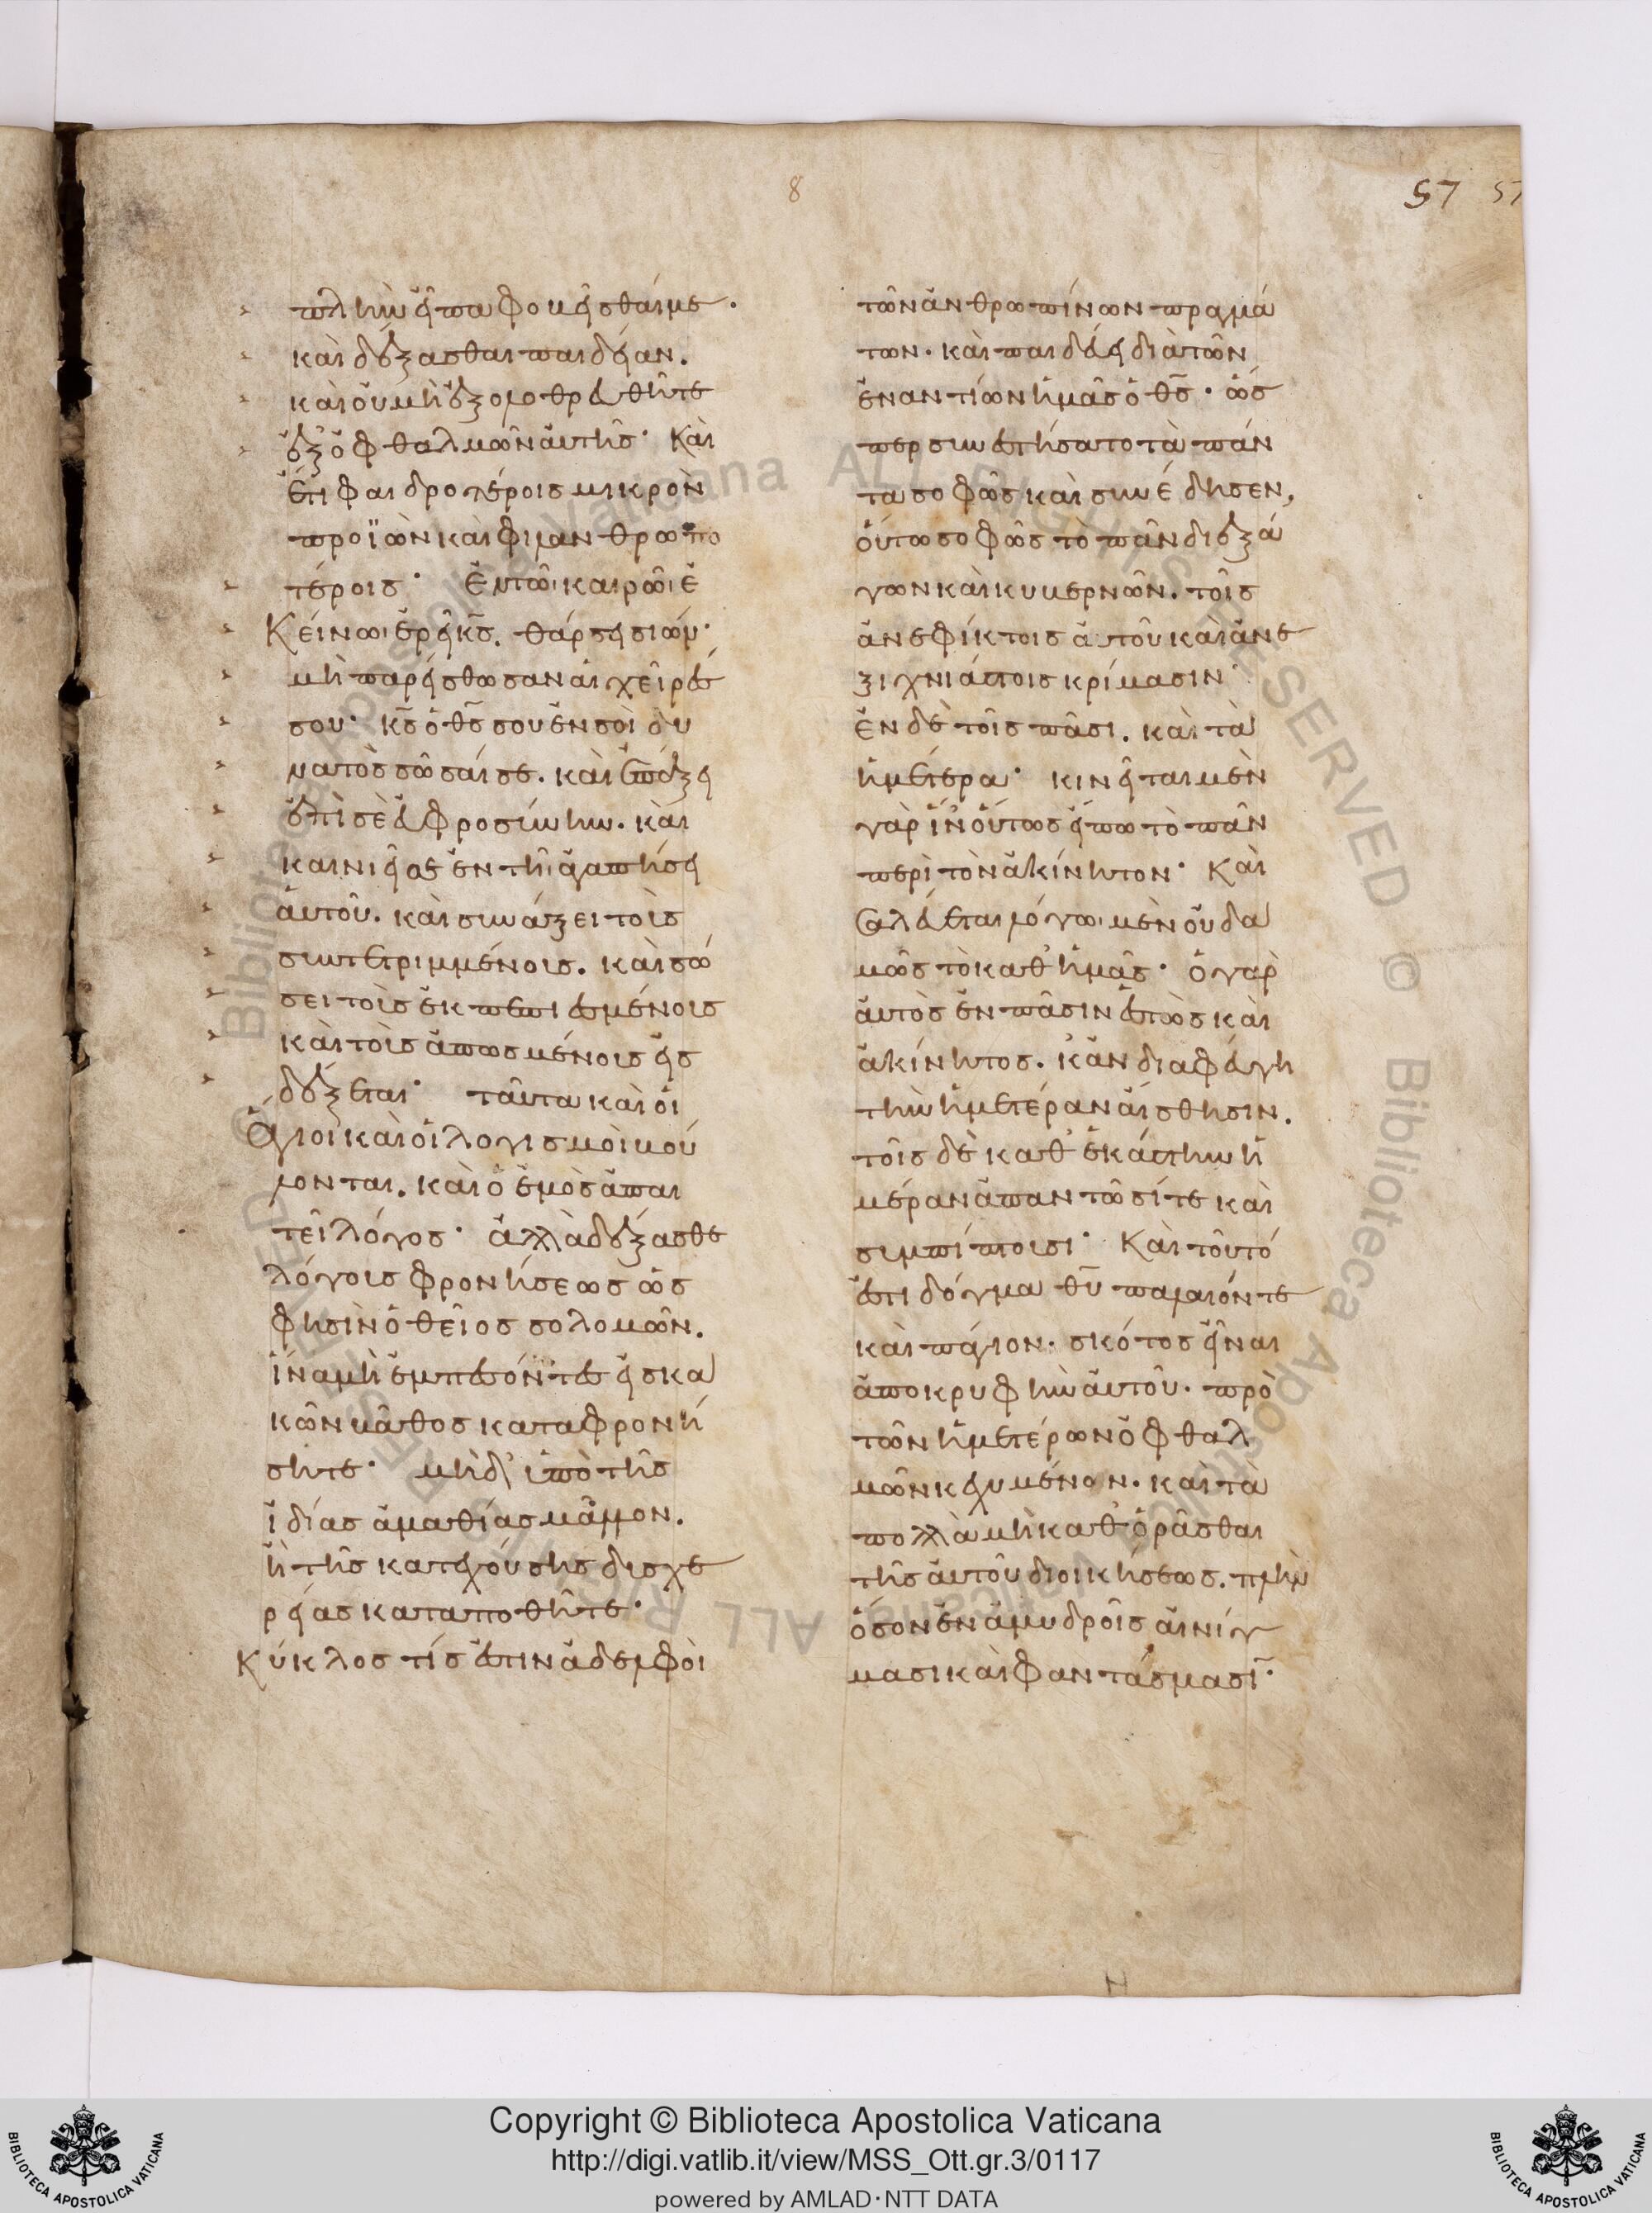 8
57 57
πλὴν εἶπα φοβεῖσθαί με·
καὶ δέξασθαι παιδείαν.
καὶ οὐ μὴ ἐξολοθρευθῆτε
ἐξ ὀφθαλμῶν αὐτῆς· Καὶ
ἔτι φαιδροτέροις μικρὸν
προϊὼν καὶ φιλανθρωπο
τέροις· Ἐν τῶι καιρῶι ἐ
Κείνωι ἐρεῖ κς. θάρσει σιών·
μὴ παρείσθωσαν αἱ χεῖρές
σου· κς ὁ θς σου ἐν σοὶ δυ
νατὸς σῶσαί σε. καὶ ἐπάξει
ἐπὶ σὲ εὐφροσύνην. καὶ
καινιεῖ σε ἐν τῆι ἀγαπήσει
αὐτοῦ. καὶ συνάξει τοὺς
συντετριμμένους. καὶ σώ
σει τοὺς ἐκπεπιεσμένους
καὶ τοὺς ἀπωσμένους εἰσ
δέξεται· ταῦτα καὶ οἱ
Ἅγιοι καὶ οἱ λογισμοὶ βού
λονται. καὶ ὁ ἐμὸς ἀπαι
τεῖ λόγος· ἀλλὰ δέξασθε
λόγους φρονήσεως ὥς
φησιν ὁ θεῖος σολομῶν.
ἵνα μὴ ἐμπεσόντες εἰς κα
κῶν βάθος καταφρονή
σητε· μὴδ' ὑπὸ τῆς
ἰδίας ἀμαθίας μᾶλλον.
ἢ τῆς κατεχούσης δυσχε
ρείας καταποθῆτε·
Κύκλος τίς ἐστιν ἀδελφοὶ
τῶν ἀνθρωπίνων πραγμά
των· καὶ παιδεύει διὰ τῶν
ἐναντίων ἡμᾶς ὁ θς· ὥσ
περ συνεστήσατο τὰ πάν
τα σοφῶς καὶ συνέδησεν,
οὕτω σοφῶς τὸ πᾶν διεξά
γων καὶ κυβερνῶν. τοῖς
ἀνεφίκτοις αὐτοῦ καὶ ἀνε
ξιχνιάστοις κρίμασιν·
ἔν δὲ τοῖς πᾶσι. καὶ τὰ
ἡμέτερα· κινεῖται μὲν
γὰρ ἵν' οὕτως εἴπω τὸ πᾶν
περὶ τὸν ἀκίνητον· Καὶ
σαλεύεται λόγωι μὲν οὐδα
μῶς τὸ καθ' ἡμᾶς· ὁ γὰρ
αὐτὸς ἐν πᾶσιν ἑστὼς καὶ
ἀκίνητος. κἂν διαφεύγη
τὴν ἡμετέραν αἴσθησιν.
τοῖς δὲ καθ' ἑκάστην ἡ
μέραν ἀπαντῶσί τε καὶ
συμπίπτουσι· Καὶ τοῦτό
ἐστι δόγμα θυ παλαιόν τε
καὶ πάγιον. σκότος εἶναι
ἀποκρυφὴν αὐτοῦ. πρὸ
τῶν ἡμετέρων ὀφθαλ
μῶν κεχυμένον. καὶ τὰ
πολλὰ μὴ καθορᾶσθαι
τῆς αὐτοῦ διοικήσεως. πλὴν
ὅσον ἐν ἀμυδροῖς αἰνίγ
μασι καὶ φαντάσμασι·
Copyright © Biblioteca Apostolica Vaticana
http://digi.vatlib.it/view/MSS_Ott.gr.3/0117
powered by AMLAD·NTT DATA